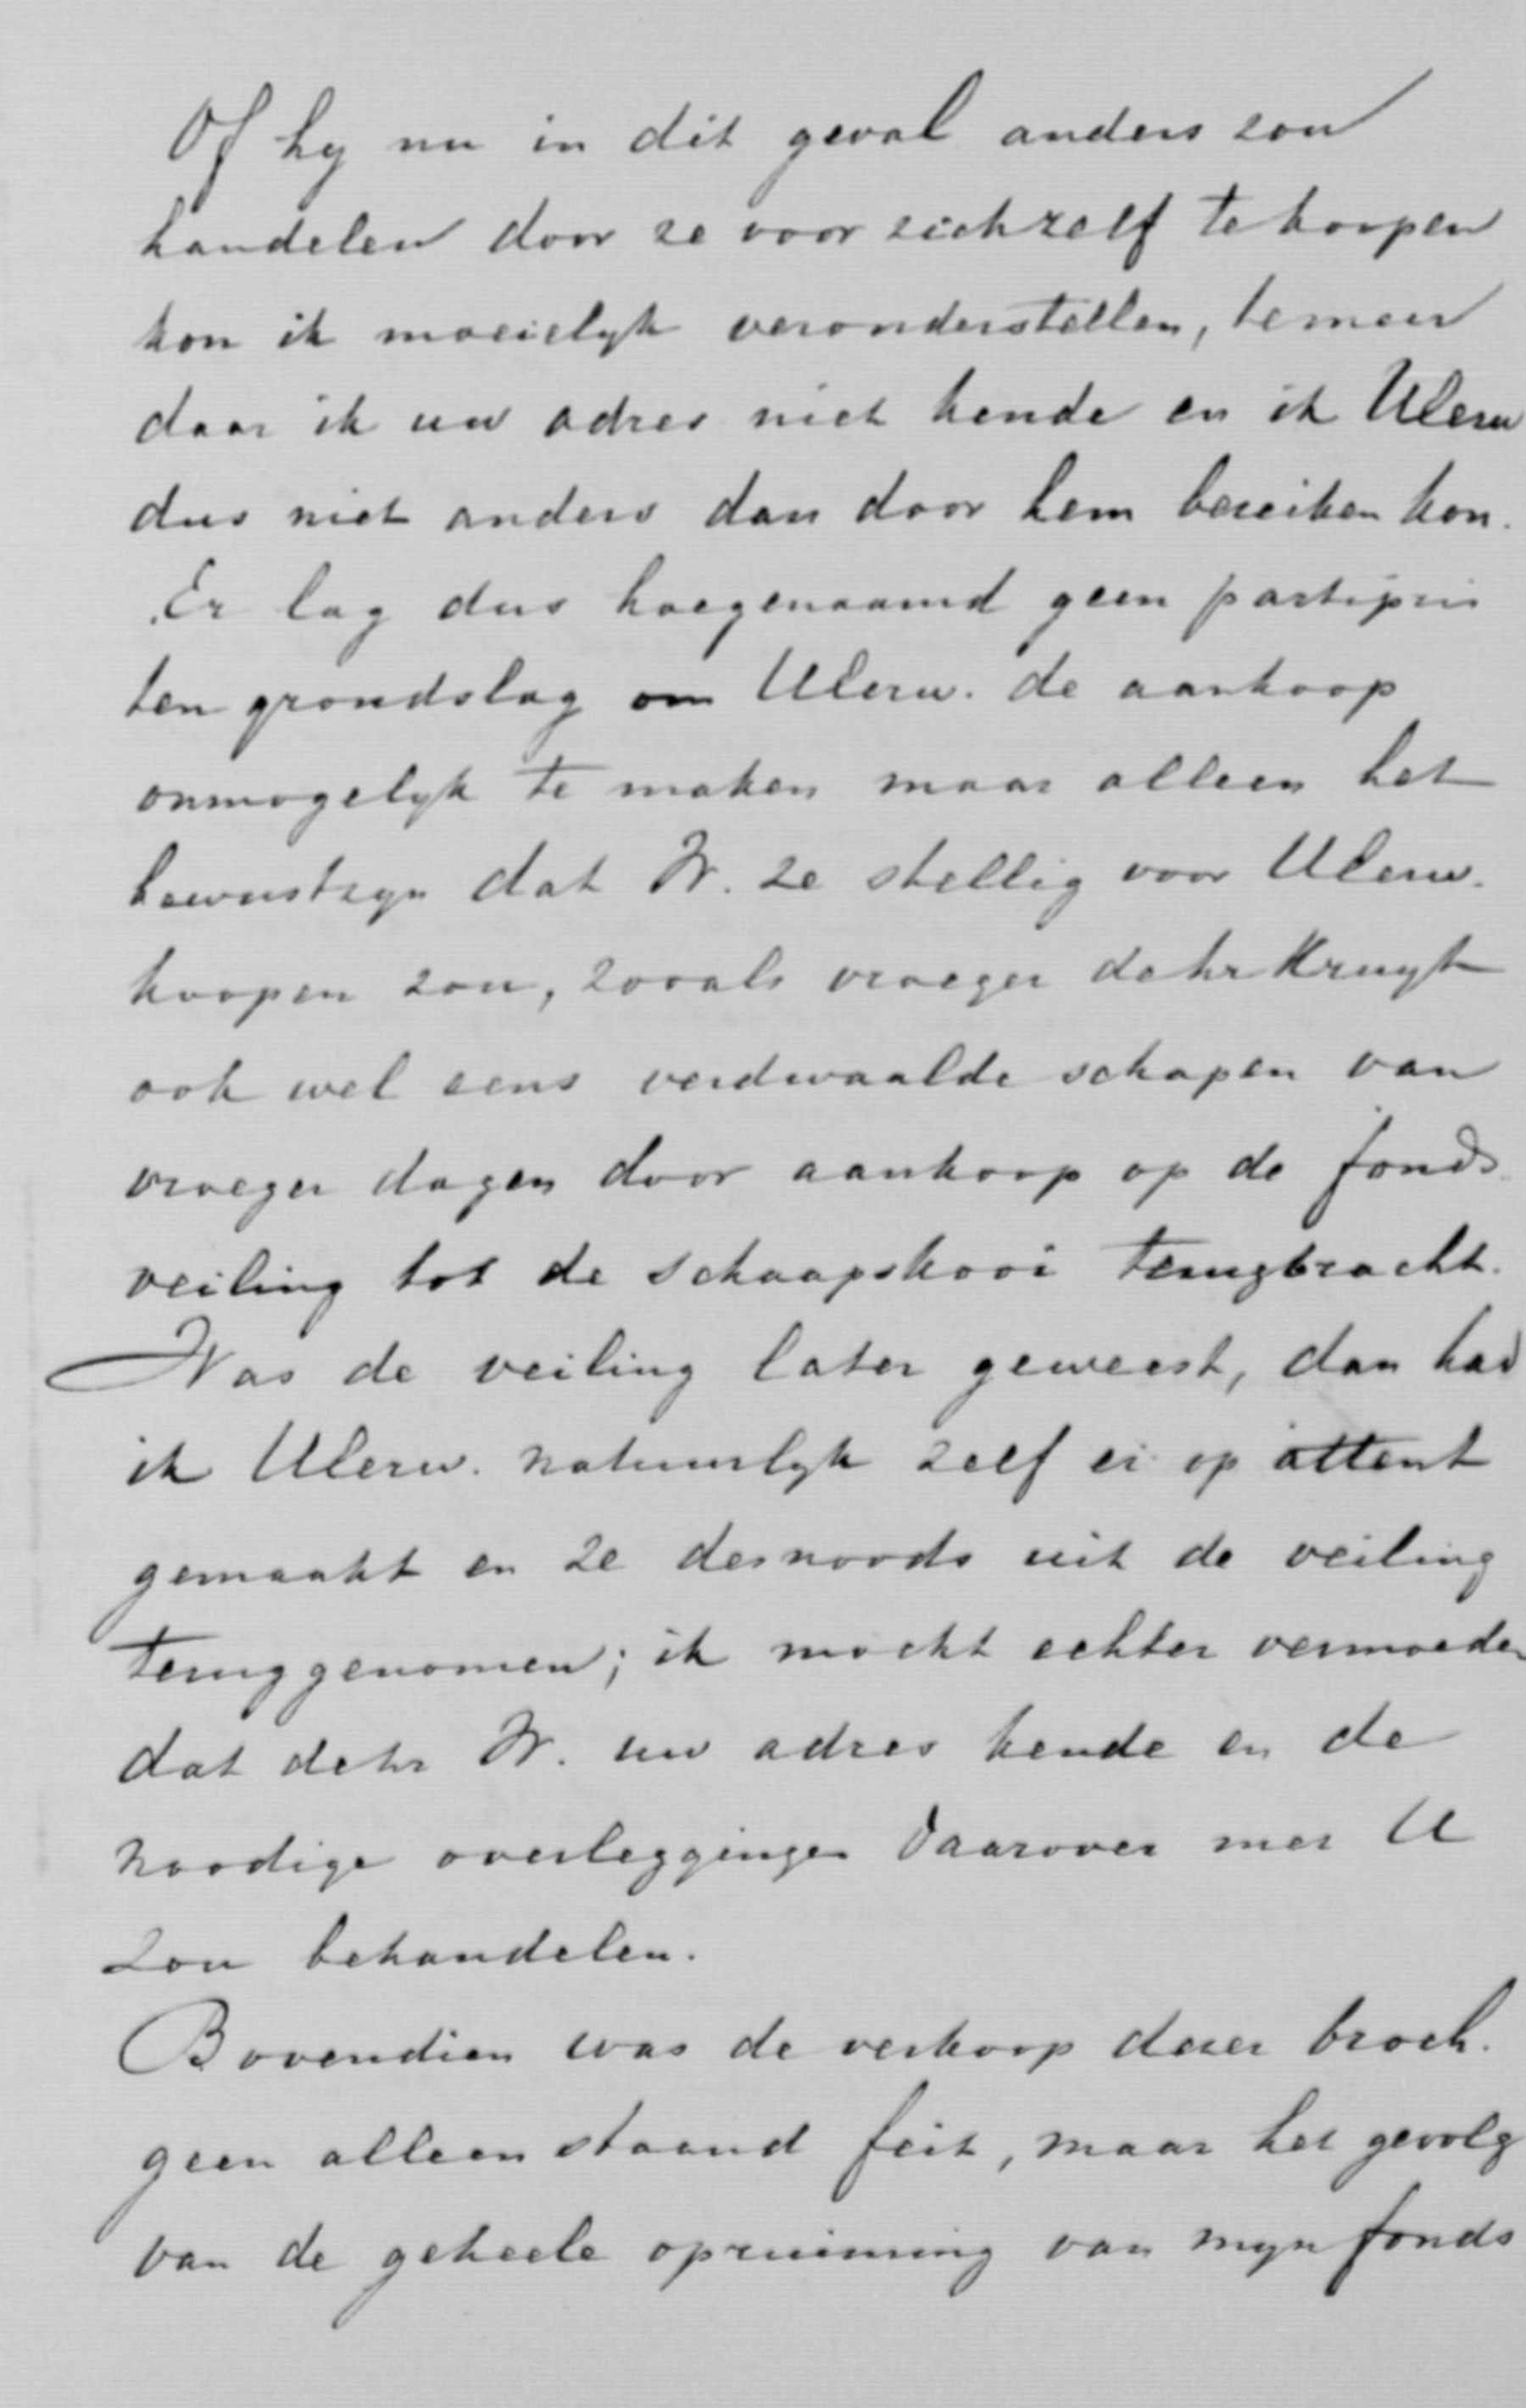 Of hy nu in dit geval anders zou
handelen door ze voor zichzelf te koopen
kon ik moeielyk veronderstellen, temeer
daar ik uw adres niet kende en ik UEerw
dus niet anders dan door hem bereiken kon.
Er lag dus hoegenaamd geen partipris
ten grondslag om UEerw. de aankoop
onmogelyk te maken maar alleen het
bewustzyn dat W. ze stellig voor UEerw.
koopen zou, zooals vroeger de hr Kruyt
ook wel eens verdwaalde schapen van
vroeger dagen door aankoop op de fonds
veiling tot de schaapskooi terugbracht.
Was de veiling later geweest, dan had
ik UEerw. natuurlyk zelf er op attent
gemaakt en ze desnoods uit de veiling
teruggenomen; ik mocht echter vermoeden
dat de hr W. uw adres kende en de
noodige overleggingen daarover met U
zou behandelen.
Bovendien was de verkoop dezer broch.
geen alleenstaand feit, maar het gevolg
van de geheele opruiming van myn fonds